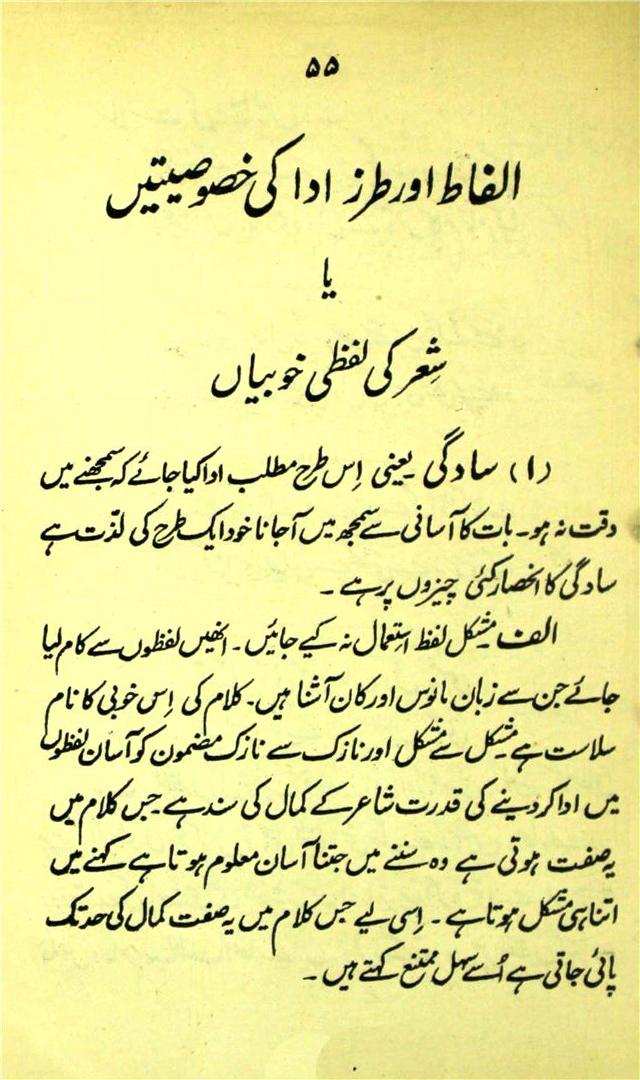 ۵۵
الفاظ اور طرز ادا کی خصوصیتیں
یا
شعر کی لفظی خوبیاں
(۱) سادگی یعنی اِس طرح مطلب ادا کیا جائے کہ سمجھنے میں
دقت نہ ہو۔ بات کا آسانی سے سمجھ میں آجانا خود ایک طرح کی لذّت ہے
سادگی کا انحصار کئی چیزوں پر ہے ۔
الف مشکل لفظ استعمال نہ کیے جائیں۔ انھیں لفظوں سے کام لیا
جائے جن سے زبان مانوس اور کان آشنا ہیں۔ کلام کی اِس خوبی کا نام
سلاست ہے مشکل سے مشکل اور نازک سے نازک مضمون کو آسان لفظوں
میں ادا کر دینے کی قدرت شاعر کے کمال کی سند ہے جس کلام میں
یہ صفت ہوتی ہے وہ سننے میں جتنا آسان معلوم ہوتا ہے کہنے میں
اتنا ہی مشکل ہوتا ہے۔ اِسی لیے جس کلام میں یہ صفت کمال کی حد تک
پائی جاتی ہے اُسے سہل ممتنع کہتے ہیں ۔